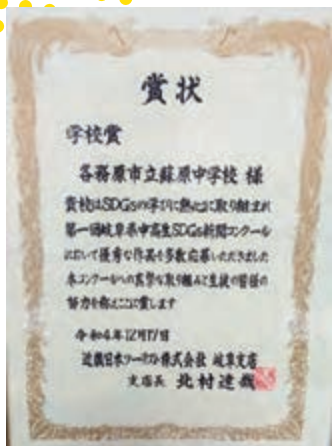 賞状
学校賞
各務原市立蘇原中学校 様
貴校はSDGsの学びに熱心に取り組まれ
第一回岐阜県中高生SDGs新聞コンクール
において優秀な作品を多数応募いただきました
本コンクールへの真摯な取り組みと生徒の皆様の
努力を称えここに賞します
令和4年12月17日
近畿日本ツーリスト株式会社 岐阜支店
支店長 北村達哉